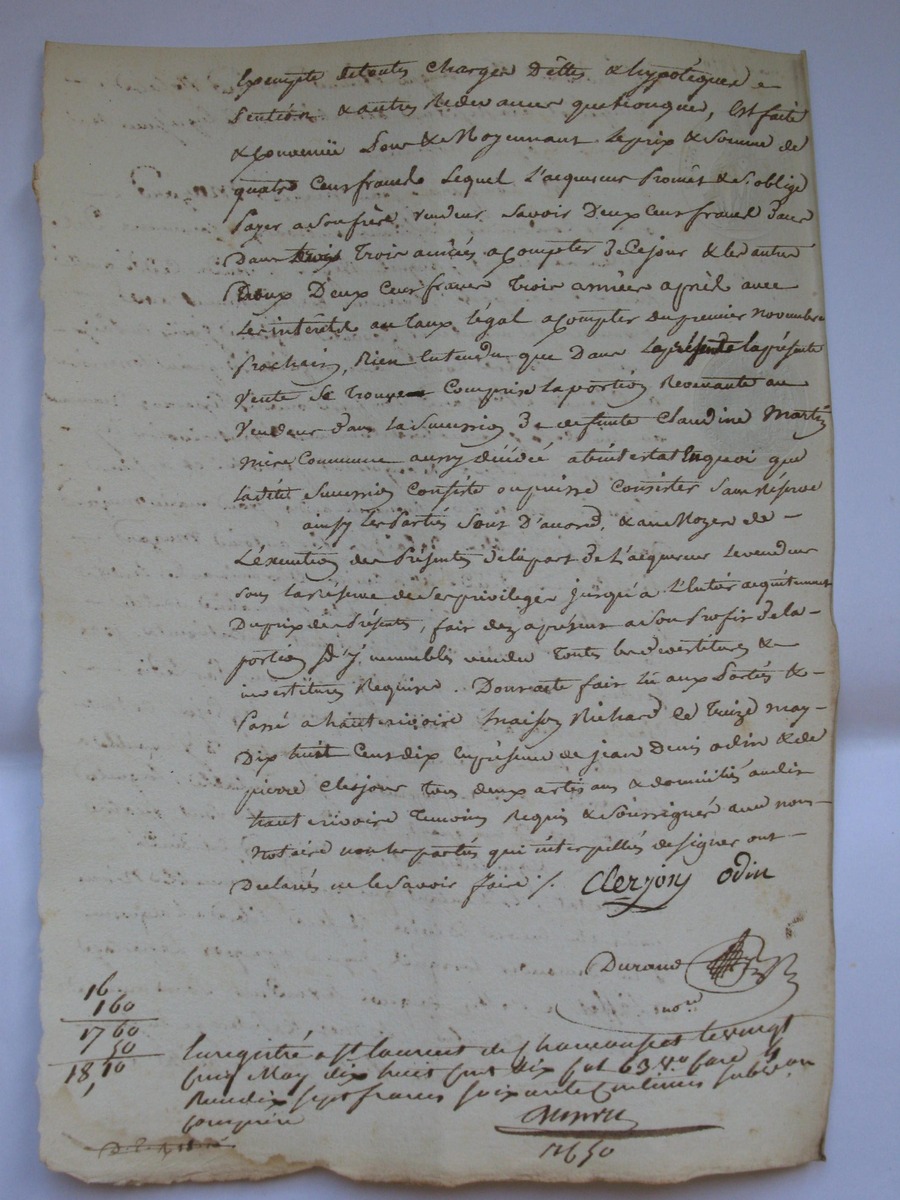 Exempte detoutes charges Dêttes & hypotêques
& autres Redevances quelconques, Est faite
& Convenüe Pour & Moyennant Leprix & Somme de
quatre Cens francs Lequel L'acquereur Promêt & S'oblige
Payer a Son frère Vendeur Savoir Deux Cens francs
Dans Trois années a Compter de Cejour & les autres
Deux Cens francs Trois années après avec
Les interêts au Taux légal a Compter Dupremier novembre
Prochain, Bien Entendu que Dans laprésente
Vente Se Trouve Comprise laportion Revenante au
Vendeur dans la Succession de deffunte Claudine Martin
mère Commune aussy décédée abintestat Enquoi que
ladite Succession Consiste oupuisse Consister Sans Réserve
ainsy les Parties Sont D'accord, & au Moyen de -
L'éxecution des Présentes de lapart de L'acquereur Levendeur
sous la Réserve de Ses privileges jusqu'à L'Entier acquittement
Duprix des Présentes, fait dez aprésent a Son Profit de la -
portion d'immeubles vendue Toutes les devestitures &
investitures Requises. Dont acte fait lû aux Parties & -
Passé à haut rivoire maison Richard le Treize may -
Dix huit Cent dix En présence de jean Denis odin & de
pierre Clerjons Tous deux artisans & domiciliés audit
haut rivoire Temoins Requis & Soussignés avec nous -
Notaire non les parties qui intérpellées designer ont -
Declarés ne le Savoir faire /. Clerjons odin
Durand
nore
16.
1 60
17 60
50
18, 10
Enregistré a St laurent de Chamousset le vingt
May dix huit cent dix fol 63 vo Case
Recu dix sept francs soixante Centimes subvon
comprise